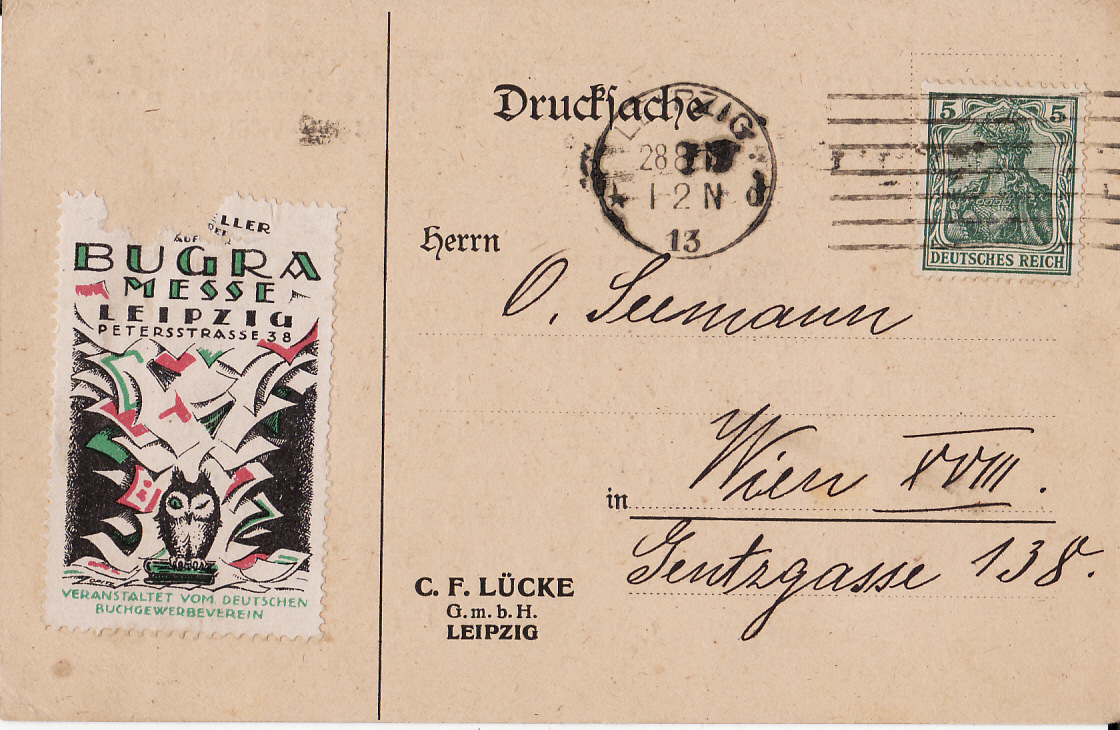 LLER
AUF DER
BUGRA
MESSE
LEIPZIG
PETERSSTRASSE 38
VERANSTALTET VOM DEUTSCHEN
BUCHGEWERBEVEREIN
Drucksache
LEIPZIG
28 8
1-2 N
d
13
5 5
DEUTSCHES REICH
Herrn
O. Seemann
in Wien XVIII.
Gentzgasse 138.
C. F. LÜCKE
G. m. b. H.
LEIPZIG